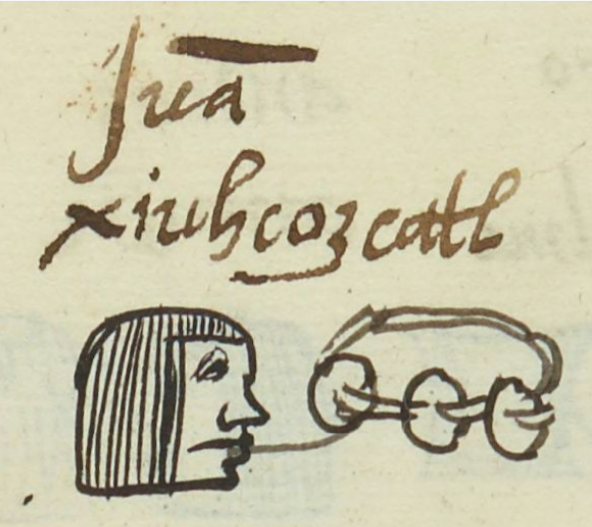 juā
xiuhcozcatl